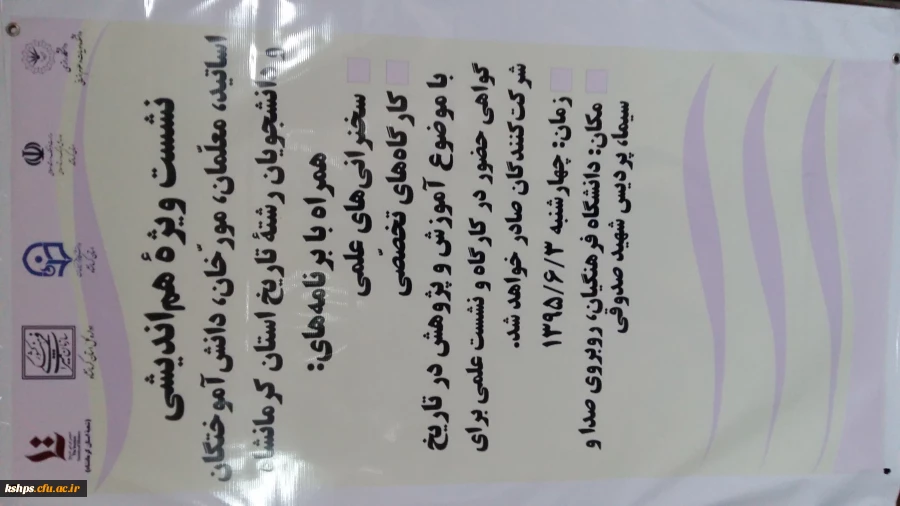 نشست ویژهٔ هم‌اندیشی
اساتید، معلّمان، مورّخان، دانش‌آموختگان
و دانشجویان رشتهٔ تاریخ استان کرمانشاه
همراه با برنامه‌های:
سخنرانی‌های علمی
کارگاه‌های تخصّصی
با موضوع آموزش و پژوهش در تاریخ
گواهی حضور در کارگاه و نشست علمی برای
شرکت‌کنندگان صادر خواهد شد.
زمان: چهارشنبه ۱۳۹۵/۶/۳
مکان: دانشگاه فرهنگیان، روبروی صدا و
سیما، پردیس شهید صدوقی
kshps.cfu.ac.ir